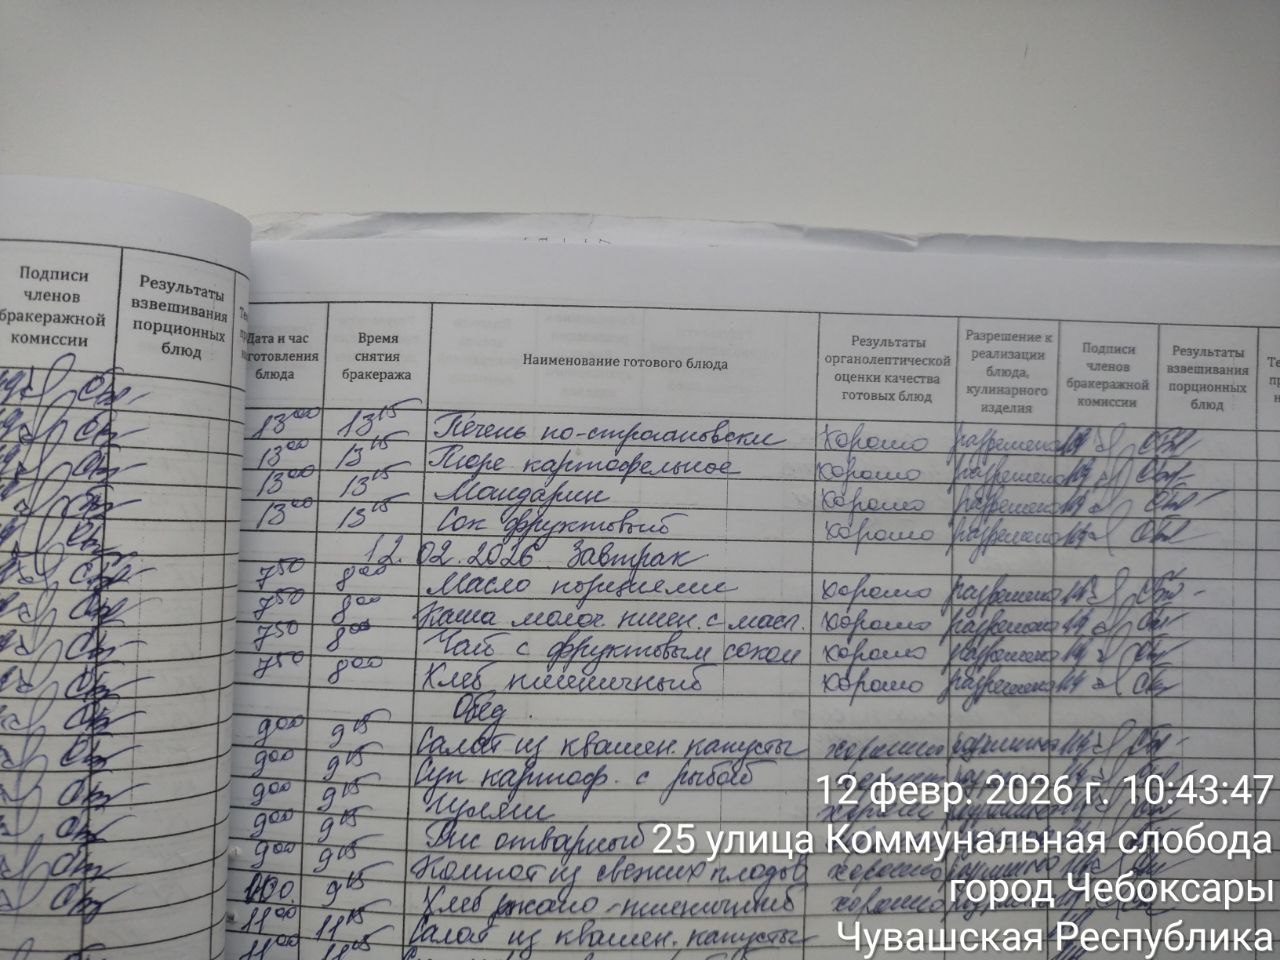 Подписи членов бракеражной комиссии
Результаты взвешивания порционных блюд
Дата и час готовления блюда
Время снятия бракеража
Наименование готового блюда
Результаты органолептической оценки качества готовых блюд
Разрешение к реализации блюда, кулинарного изделия
Подписи членов бракеражной комиссии
Результаты взвешивания порционных блюд
13 00 13 15 Печень по-строгановски хорошо разрешено
13 00 13 15 Пюре картофельное хорошо разрешено
13 00 13 15 Мандарин хорошо разрешено
13 00 13 15 Сок фруктовый хорошо разрешено
12.02.2026 Завтрак
7 50 8 00 Масло порциями хорошо разрешено
7 50 8 00 Каша молоч. пшен. с масл. хорошо разрешено
7 50 8 00 Чай с фруктовым соком хорошо разрешено
7 50 8 00 Хлеб пшеничный хорошо разрешено
Обед.
9 00 9 15 Салат из квашен. капусты хорошо разрешено
9 00 9 15 Суп картоф. с рыбой
9 00 9 15 Гуляш хорошо
9 00 9 15 Рис отварной
9 00 9 15 Компот из свежих плодов хорошо
9 15 Хлеб ржано-пшеничный хорошо
11 00 11 15 Салат из квашен. капусты
11 00
12 февр. 2026 г. 10:43:47
25 улица Коммунальная слобода
город Чебоксары
Чувашская Республика